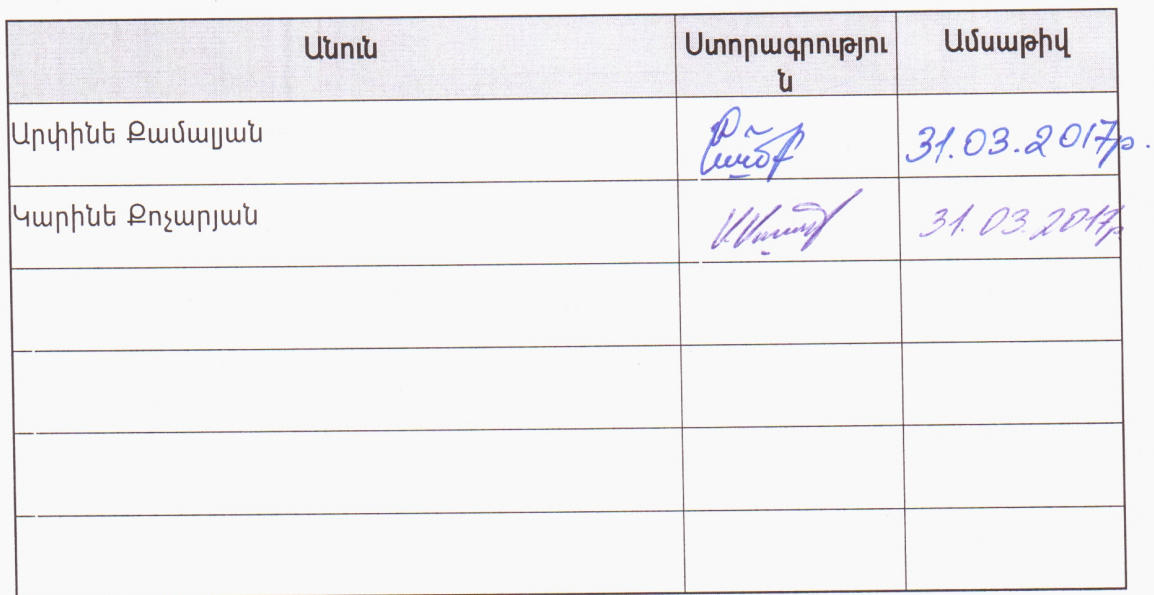 Անուն Ստորագրությու
ն Ամսաթիվ
Արփինե Քամալյան 31.03.2017թ.
Կարինե Քոչարյան 31.03.2017թ